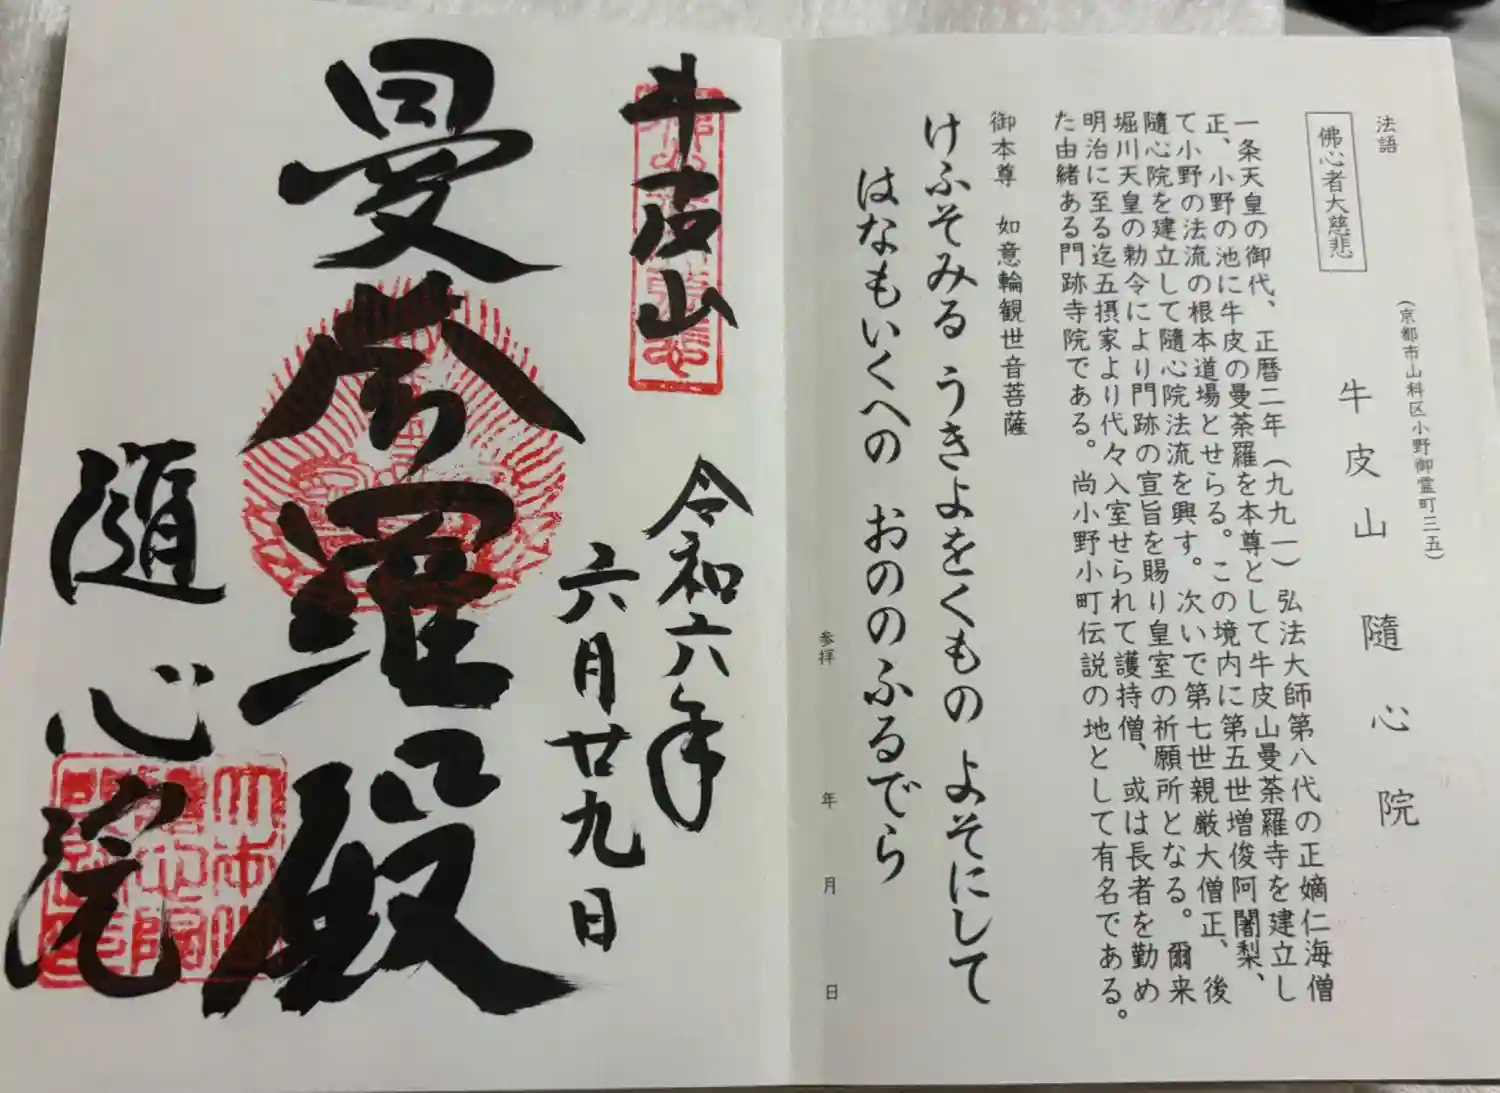 法語
佛心者大慈悲
（京都市山科区小野御霊町三五）
牛皮山 隨心院
一条天皇の御代、正暦二年（九九一）弘法大師第八代の正嫡仁海僧
正、小野の池に牛皮の曼荼羅を本尊として牛皮山曼荼羅寺を建立し
て小野の法流の根本道場とせらる。この境内に第五世増俊阿闍梨、
隨心院を建立して隨心院法流を興す。次いで第七世親厳大僧正、後
堀川天皇の勅令により門跡の宣旨を賜り皇室の祈願所となる。爾来
明治に至る迄五摂家より代々入室せられて護持僧、或は長者を勤め
た由緒ある門跡寺院である。尚小野小町伝説の地として有名である。
御本尊 如意輪観世音菩薩
けふそみる うきよをくもの よそにして
はなもいくへの おののふるでら
参拝 年 月 日
牛皮山
令和六年
六月廿九日
曼荼羅殿
隨心院